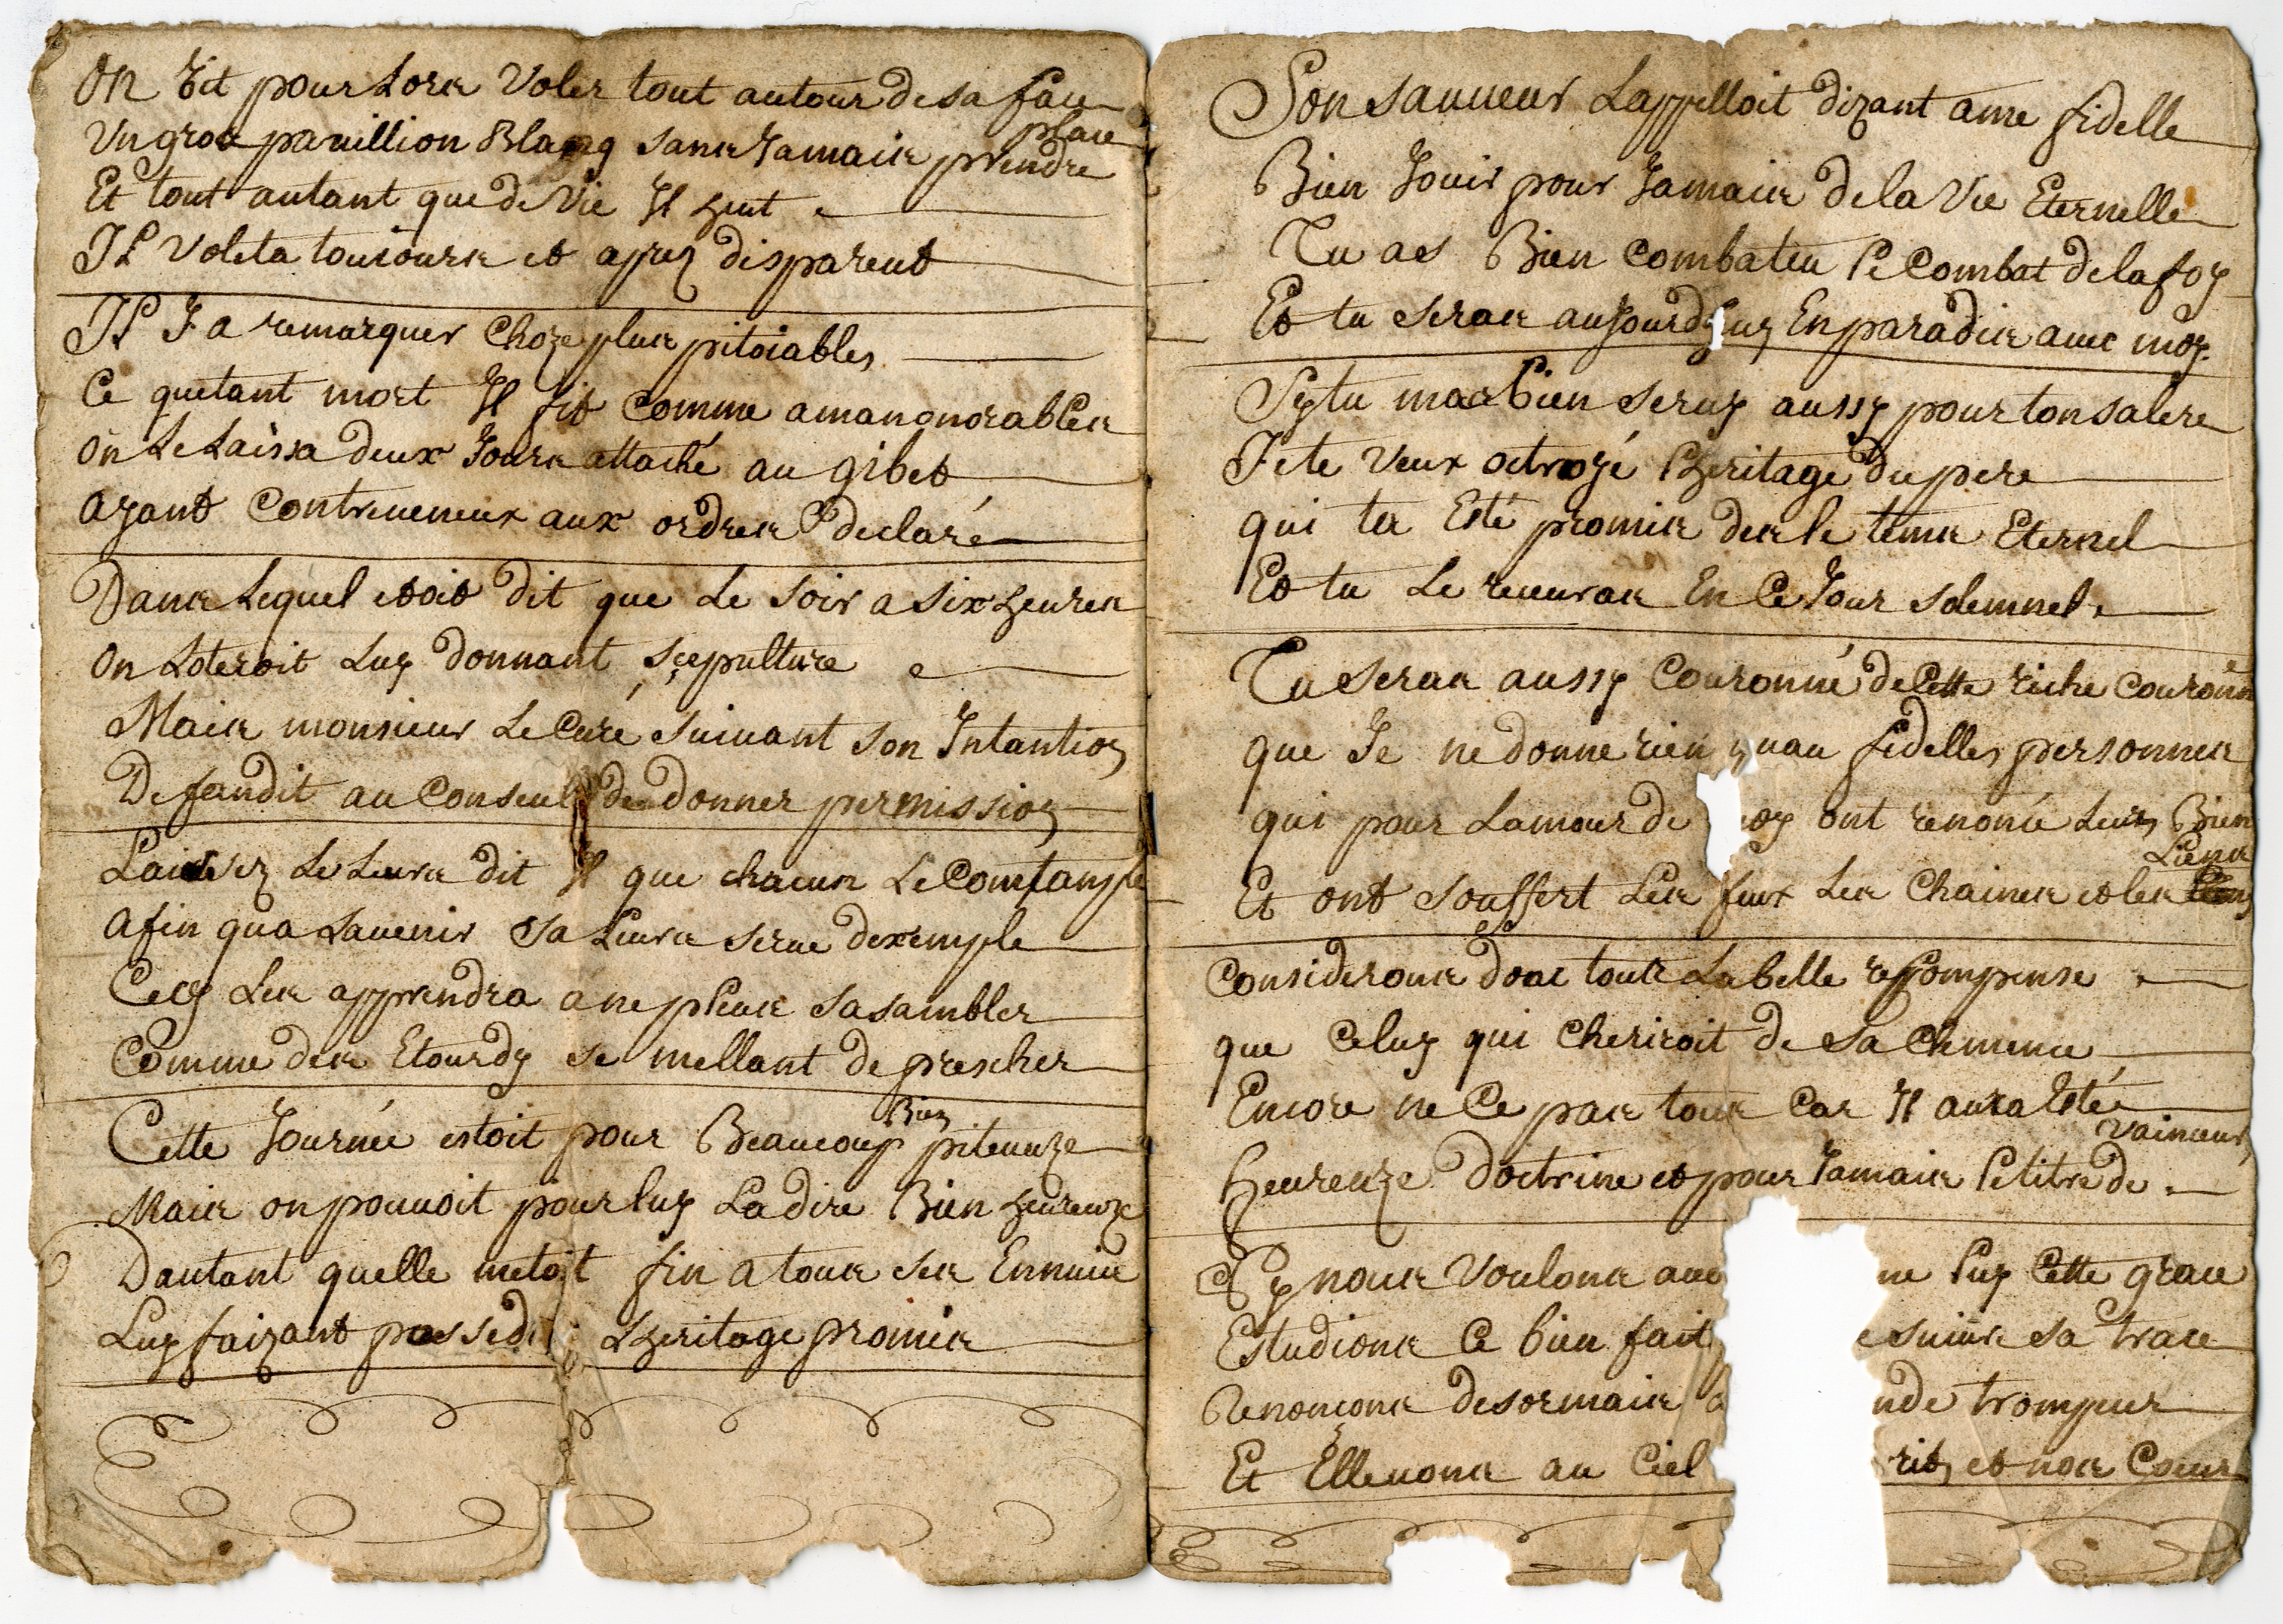 On vit pour Lors Voler tout autour de sa face
Un gros pauillion Blancq sans Jamais prendre place
Et tout autant que de Vie Il heut
Il Voleta tousiours et aprez disparent
Il Y a remarquer Choze plus pitoiables
Ce quetant mort Il fit comme amanonorables
On Le Laissa deux Jours attaché au gibet
ayant contreueneux aux ordres declaré
Dans Lequel etoit dit que Le Soir a six heures
on Loteroit Luy donnant scepulture
Mais monsieur Le Curé Suiuant son Intantion
Defandit au Conseul de donner permission
Laissez Le Leurs dit Il que chacun Le Comtample
afin qua Lauenir Sa Leurs serue dexemple
Cecy Les apprendra a ne pleus sasambler
Comme des Etourdy se mellant de prescher
Cette Journée estoit pour Beaucoup Bien piteuuze
Mais on pouuoit pour luy La dire Bien heureuze
Dautant quelle metoit fin a tous ses Ennuis
Luy faizant possede Lheritage promis
Son sauueur Lappelloit dizant ame fidelle
Bien Jouir pour Jamais de la Vie Eternelle
Tu as Bien combateu le combat de la foy
Et tu seras aujourdhuy En paradis auec moy
Sy tu mas bien seruy aussy pour ton salere
Je te veux octroyé lheritage du pere
qui ta Esté promis des le tems Eternel
Et tu Le receuras En Ce Jour solemnel
Tu seras aussy couronné de Cette riche couronn
que Je ne donne rien quau fidelles personnes
qui pour Lamour de oy ont renoncé Leurs Bien
Et ont souffert Les feux Les chaines et les Liens
Considerons donc tous La belle recompense
que Celuy qui cheriroit de sa clemence
Encore ne Ce pas tous Car Il aura Esté
heureuze doctrine et pour Jamais le titre de vainceur
Sy nous voulons aue ne luy Cette grace
Estudions Ce bien fait e suiure sa trace
Renoncons desormais a nde trompeur
Et Elleuons au Ciel rits et nos Coeurs